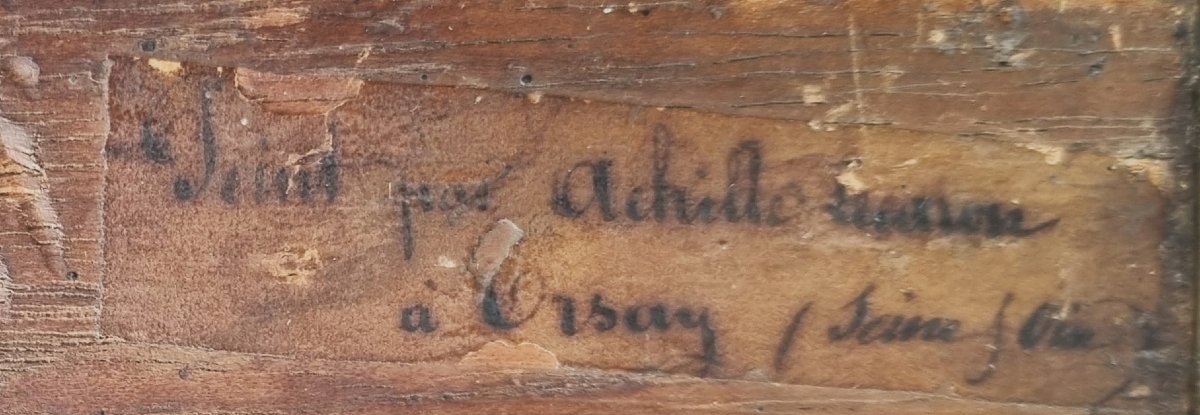 Peint par Achille
à Orsay (Seine & Oise)